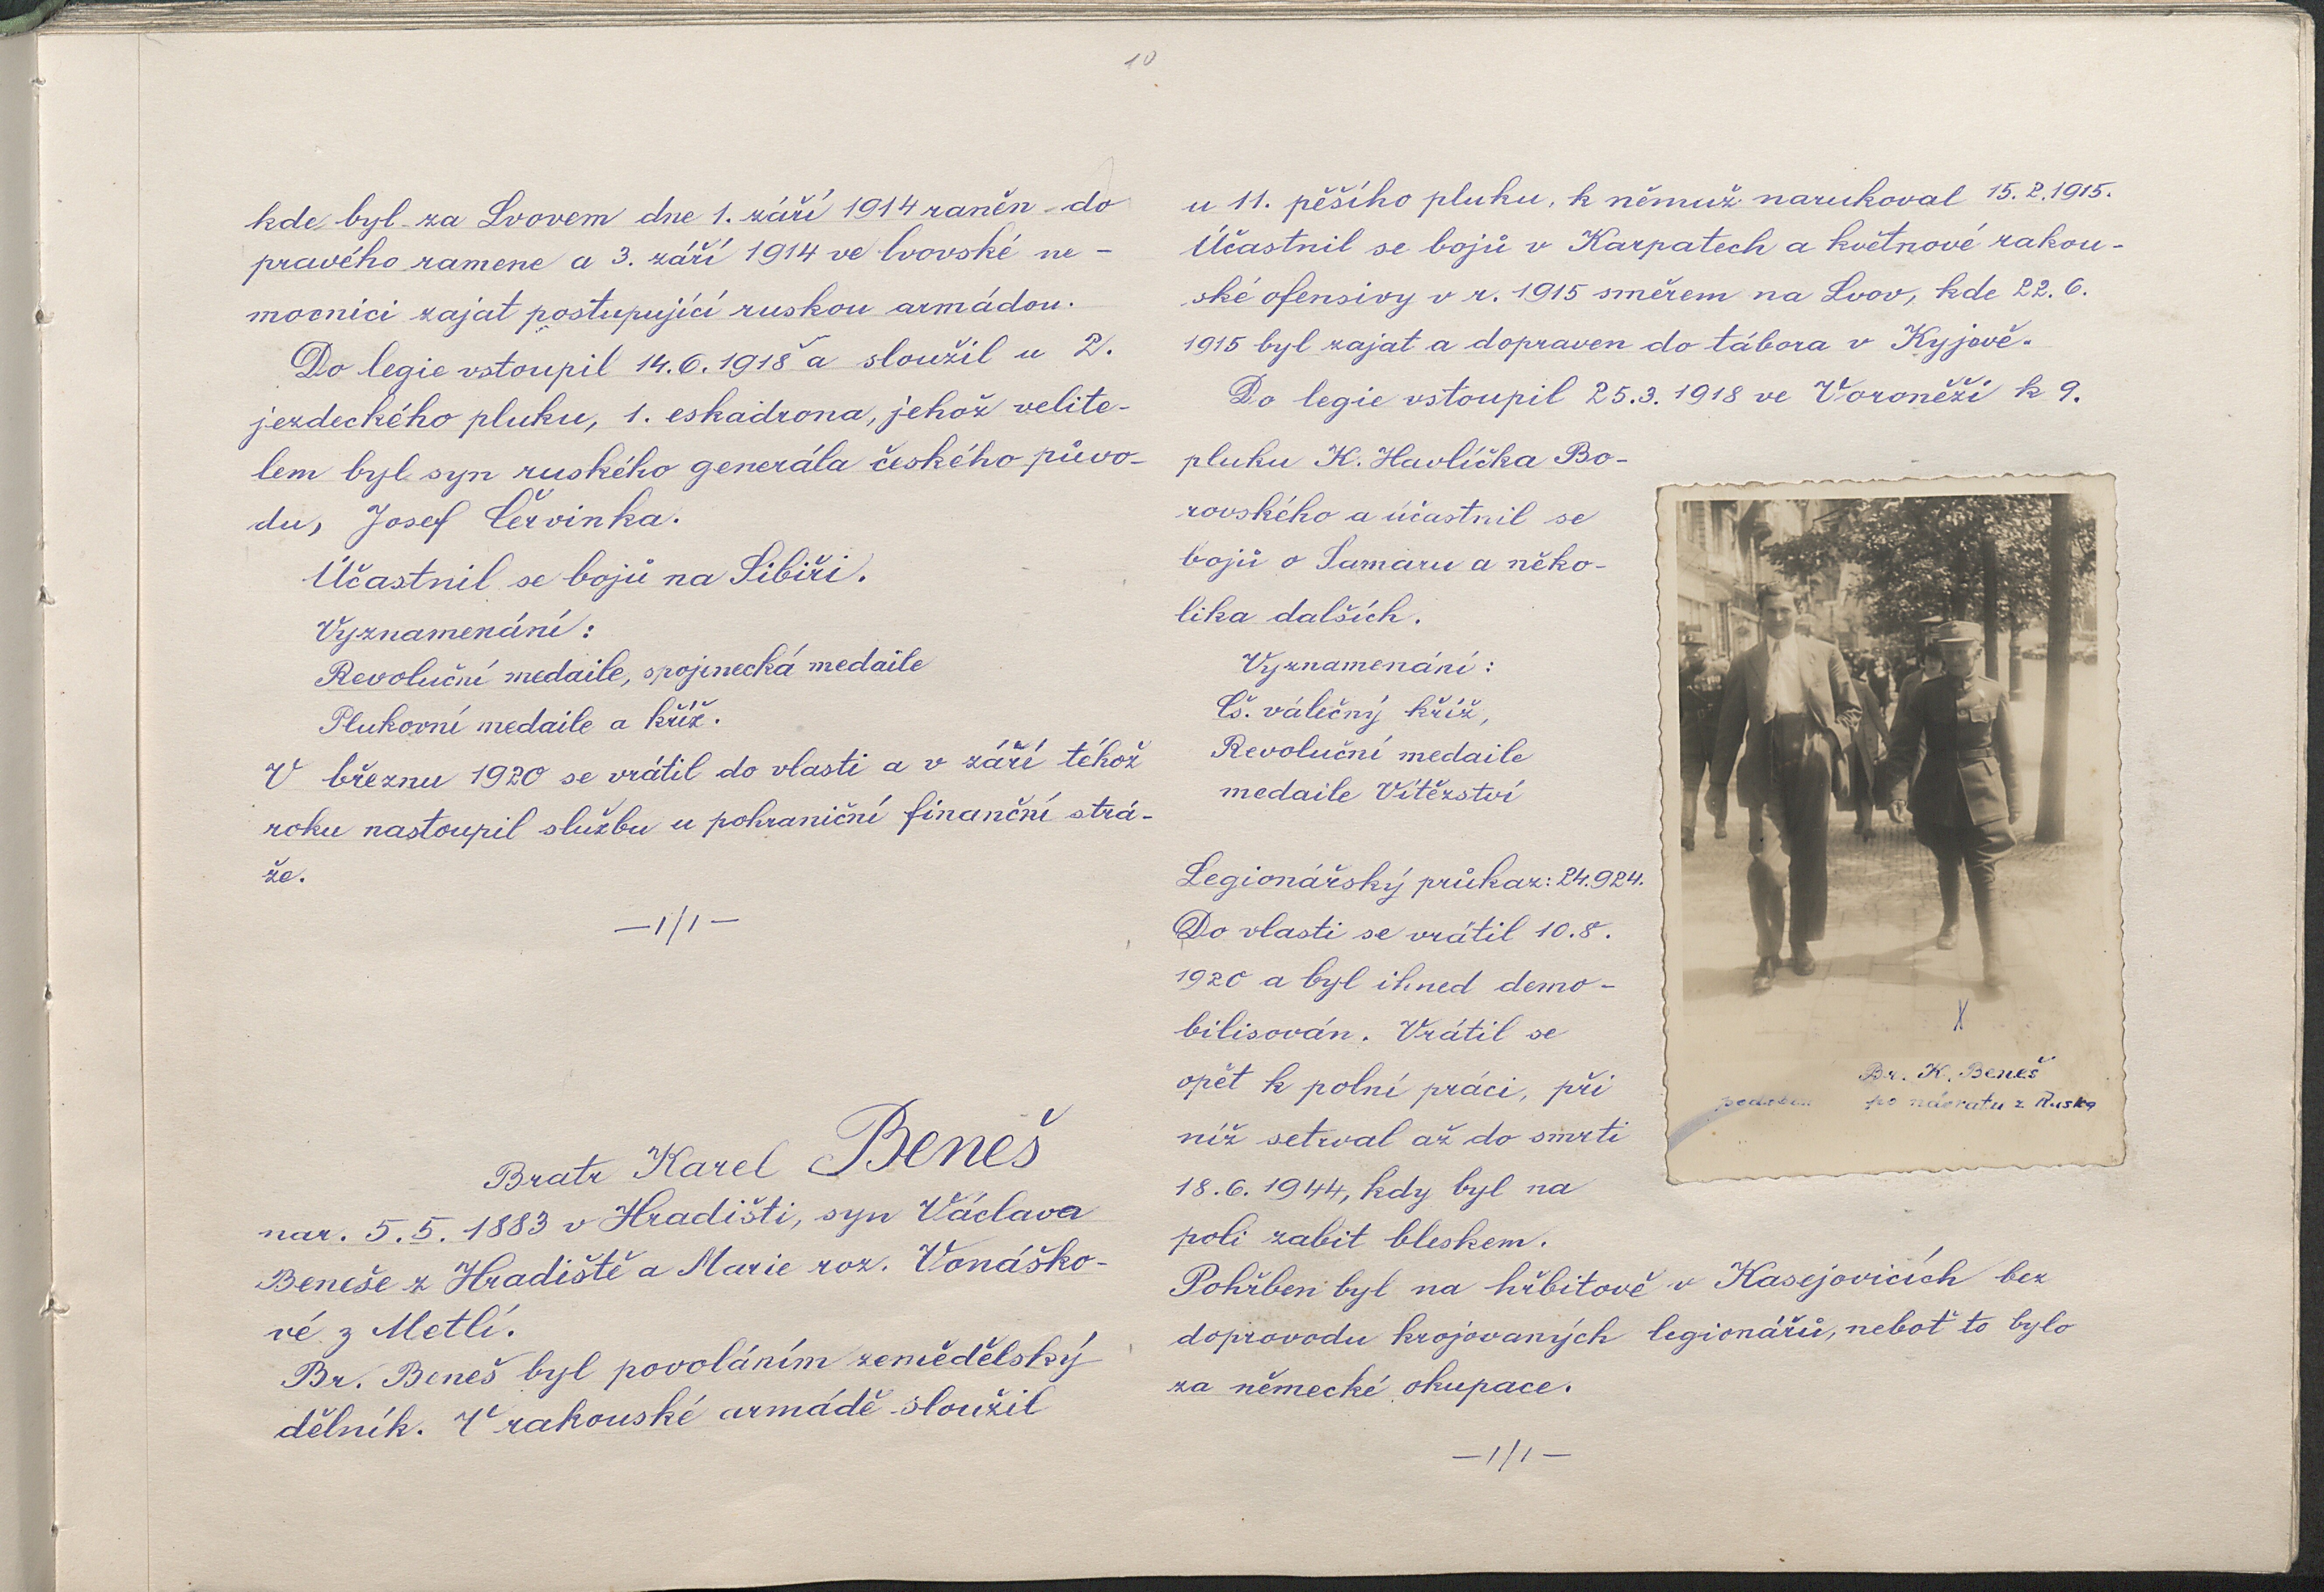 10
kde byl za Lvovem dne 1. září 1914 raněn do
pravého ramene a 3. září 1914 ve lvovské ne-
mocnici zajat postupující ruskou armádou.
Do legie vstoupil 14.6.1918 a sloužil u 2.
jezdeckého pluku, 1. eskadrona, jehož velite-
lem byl syn ruského generála českého půvo-
du, Josef Červinka.
Účastnil se bojů na Sibiři.
Vyznamenání:
Revoluční medaile, spojenecká medaile
Plukovní medaile a kříž.
V březnu 1920 se vrátil do vlasti a v září téhož
roku nastoupil službu u pohraniční finanční strá-
že.
—1/1—
Bratr Karel Beneš
nar. 5.5. 1883 v Hradišti, syn Václava
Beneše z Hradiště a Marie roz. Vonáško-
vé z Metlí.
Br. Beneš byl povoláním zemědělský
dělník. V rakouské armádě sloužil
u 11. pěšího pluku, k němuž narukoval 15.2.1915.
Účastnil se bojů v Karpatech a květnové rakou-
ské ofensivy v r. 1915 směrem na Lvov, kde 22.6.
1915 byl zajat a dopraven do tábora v Kyjevě.
Do legie vstoupil 25.3.1918 ve Voroněži k 9.
pluku K. Havlíčka Bo-
rovského a účastnil se
bojů o Samaru a něko-
lika dalších.
Vyznamenání:
Čs. válečný kříž,
Revoluční medaile
medaile Vítězství
Legionářský průkaz: 24.924.
Do vlasti se vrátil 10.8.
1920 a byl ihned demo-
bilisován. Vrátil se
opět k polní práci, při
níž setrval až do smrti
18.6.1944, kdy byl na
poli zabit bleskem.
Pohřben byl na hřbitově v Kasejovicích bez
doprovodu krojovaných legionářů, neboť to bylo
za německé okupace.
—1/1—
X
Br. K. Beneš
po návratu z Ruska